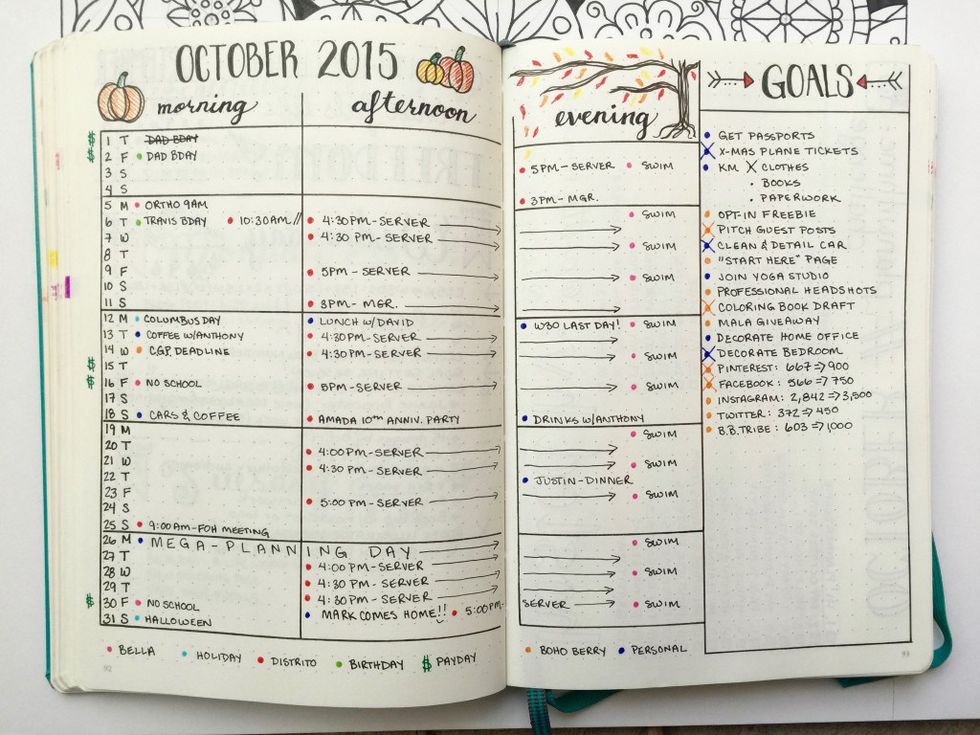 OCTOBER 2015
morning afternoon
$ 1 T DAD BDAY
$ 2 F DAD BDAY
3 S
4 S
5 M ORTHO 9AM
6 T TRAVIS BDAY 10:30AM// 4:30PM-SERVER
7 W 4:30 PM-SERVER
8 T
9 F 5PM-SERVER
10 S
11 S 3PM-MGR.
12 M COLUMBUS DAY LUNCH W/DAVID
13 T COFFEE W/ANTHONY 4:30PM-SERVER
14 W C.G.P. DEADLINE 4:30PM-SERVER
$ 15 T
$ 16 F NO SCHOOL 5PM-SERVER
17 S
18 S CARS & COFFEE AMADA 10TH ANNIV. PARTY
19 M
20 T 4:00PM-SERVER
21 W 4:30 PM-SERVER
22 T
23 F 5:00 PM-SERVER
24 S
25 S 9:00AM-FOH MEETING
26 M MEGA-PLANNING DAY
27 T 4:00 PM-SERVER
28 W 4:30 PM-SERVER
29 T 4:30 PM-SERVER
$ 30 F NO SCHOOL MARK COMES HOME!! 5:00PM-
31 S HALLOWEEN
BELLA HOLIDAY DISTRITO BIRTHDAY $ PAYDAY
92
evening
5PM-SERVER SWIM
3PM-MGR.
SWIM
SWIM
SWIM
W30 LAST DAY! SWIM
SWIM
SWIM
DRINKS W/ANTHONY
SWIM
SWIM
JUSTIN-DINNER
SWIM
SWIM
SWIM
SERVER SWIM
BOHO BERRY PERSONAL
GOALS
GET PASSPORTS
X-MAS PLANE TICKETS
KM X CLOTHES
• BOOKS
• PAPERWORK
OPT-IN FREEBIE
PITCH GUEST POSTS
CLEAN & DETAIL CAR
"START HERE" PAGE
JOIN YOGA STUDIO
PROFESSIONAL HEADSHOTS
COLORING BOOK DRAFT
MALA GIVEAWAY
DECORATE HOME OFFICE
DECORATE BEDROOM
PINTEREST: 667⇒900
FACEBOOK: 566⇒750
INSTAGRAM: 2,842⇒3,500
TWITTER: 372⇒450
B.B. TRIBE: 603⇒1,000
93